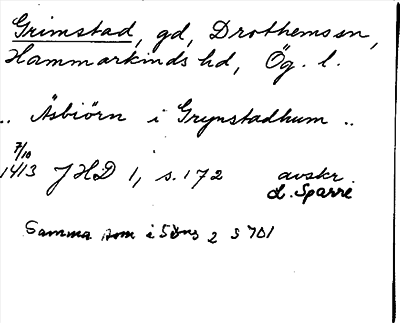 Grimstad, gd, Drothems sn,
Hammarkinds hd, Ög. l.
.. Äsbiörn i Grynstadhum ..
7/10
1413 JHD 1, s. 172 avskr.
d. Sparre
Samma som i SDns 2 s 701